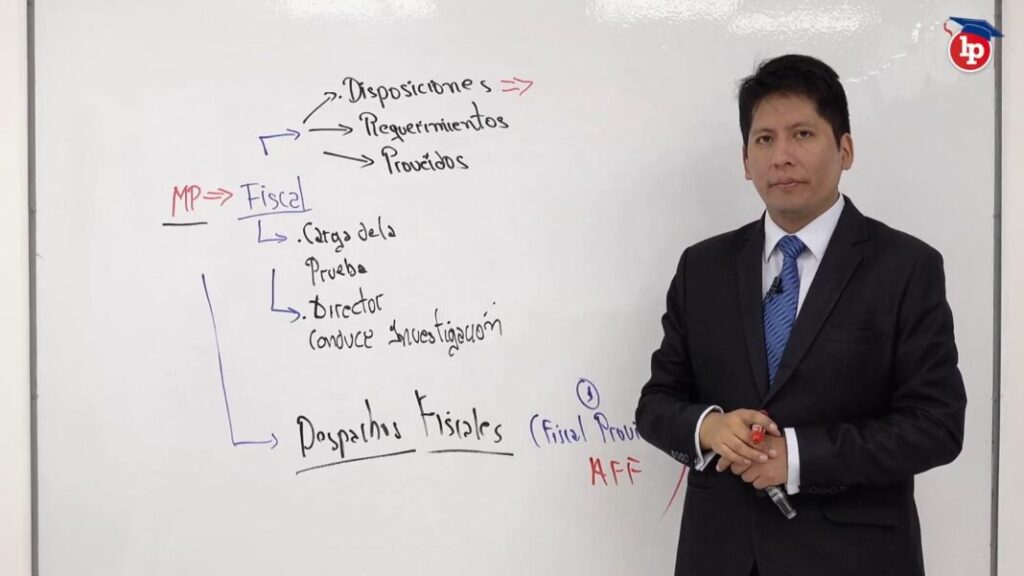 lp
. Disposiciones =>
Requerimientos
Proveídos
MP => Fiscal
. Carga de la
Prueba
. Director
Conduce Investigación
Despachos Fiscales
1
(Fiscal Provi
AFF